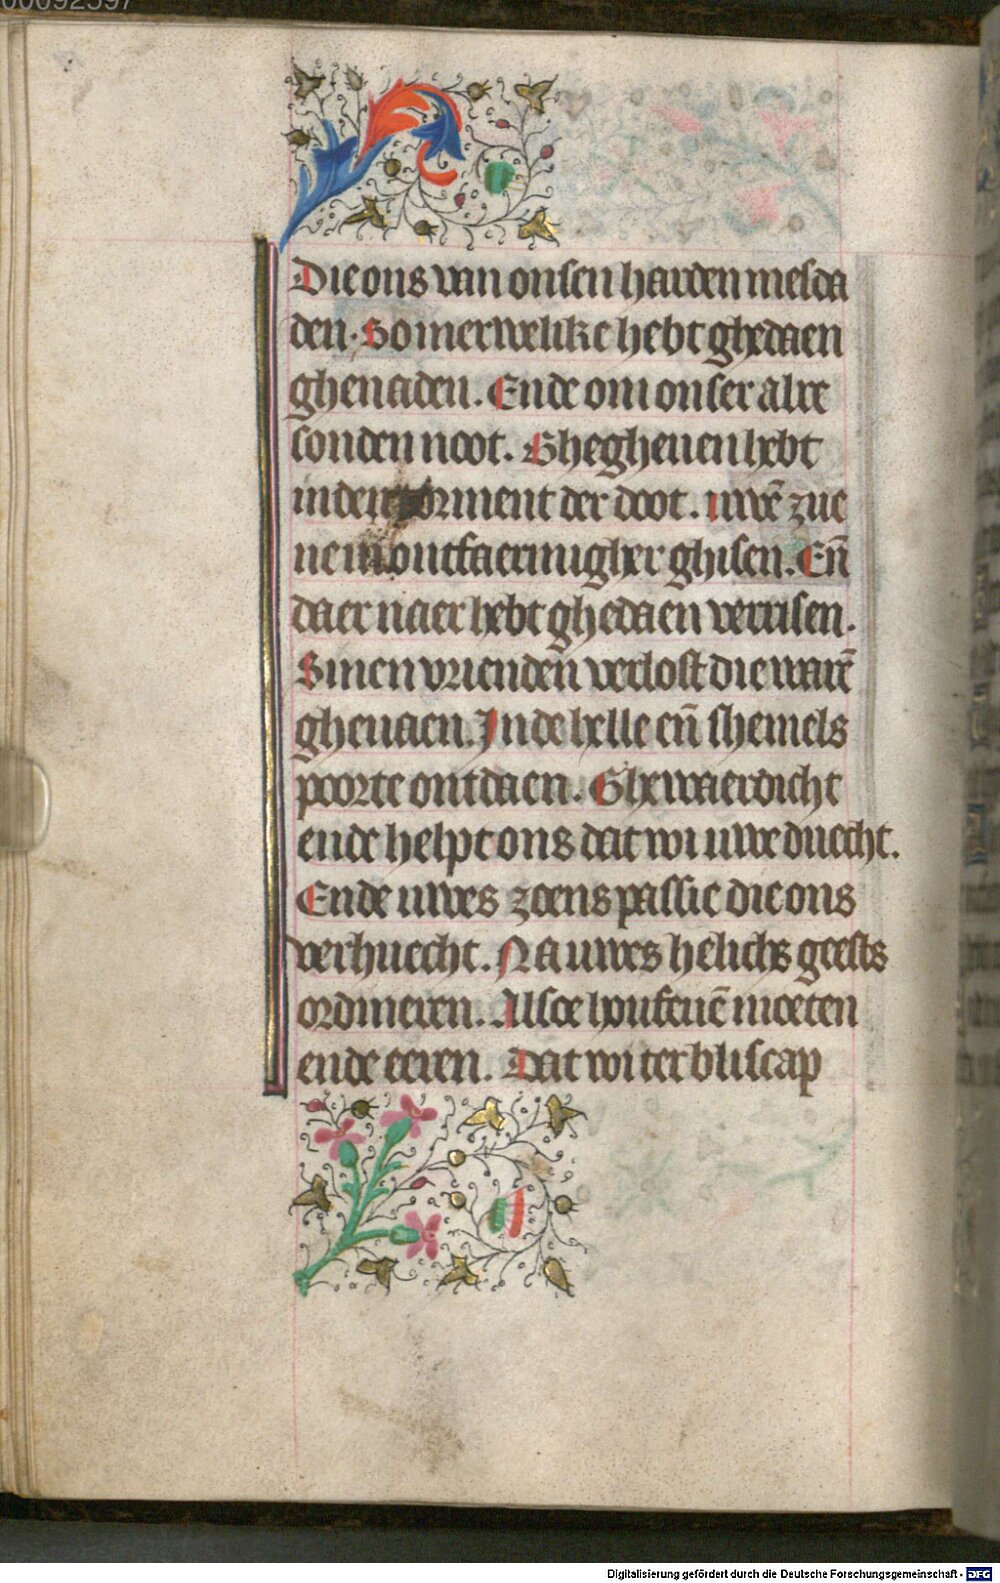 00092397
Die ons van onsen harden mesda
den. So merwelike hebt ghedaen
ghenaden. Ende om onser alre
sonden noot. Ghegheuen hebt
inden torment der doot. uwē zue
nem ontfaermigher ghisen. En̄
daer naer hebt ghedaen verrisen.
Sinen vrienden verlost die warē
gheuaen. In de helle en̄ shemels
poorte ontdaen. Ghewaerdicht
ende helpt ons dat wi uwe duecht.
Ende uwes zoens passie die ons
verhuecht. Na uwes helichs geests
ordineren. Alsoe moeten
ende eeren. Dat wi ter bliscap
Digitalisierung gefördert durch die Deutsche Forschungsgemeinschaft - DFG